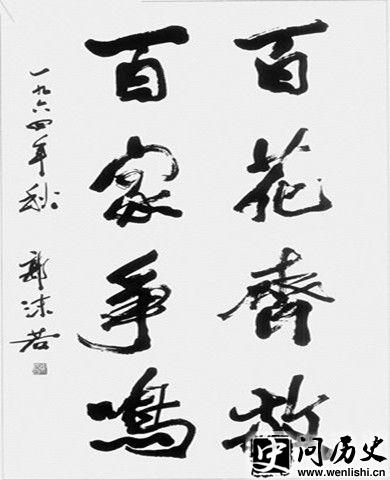 百花齊放
百家争鳴
一九六四年秋
郭沫若
史问历史
www.wenlishi.cn